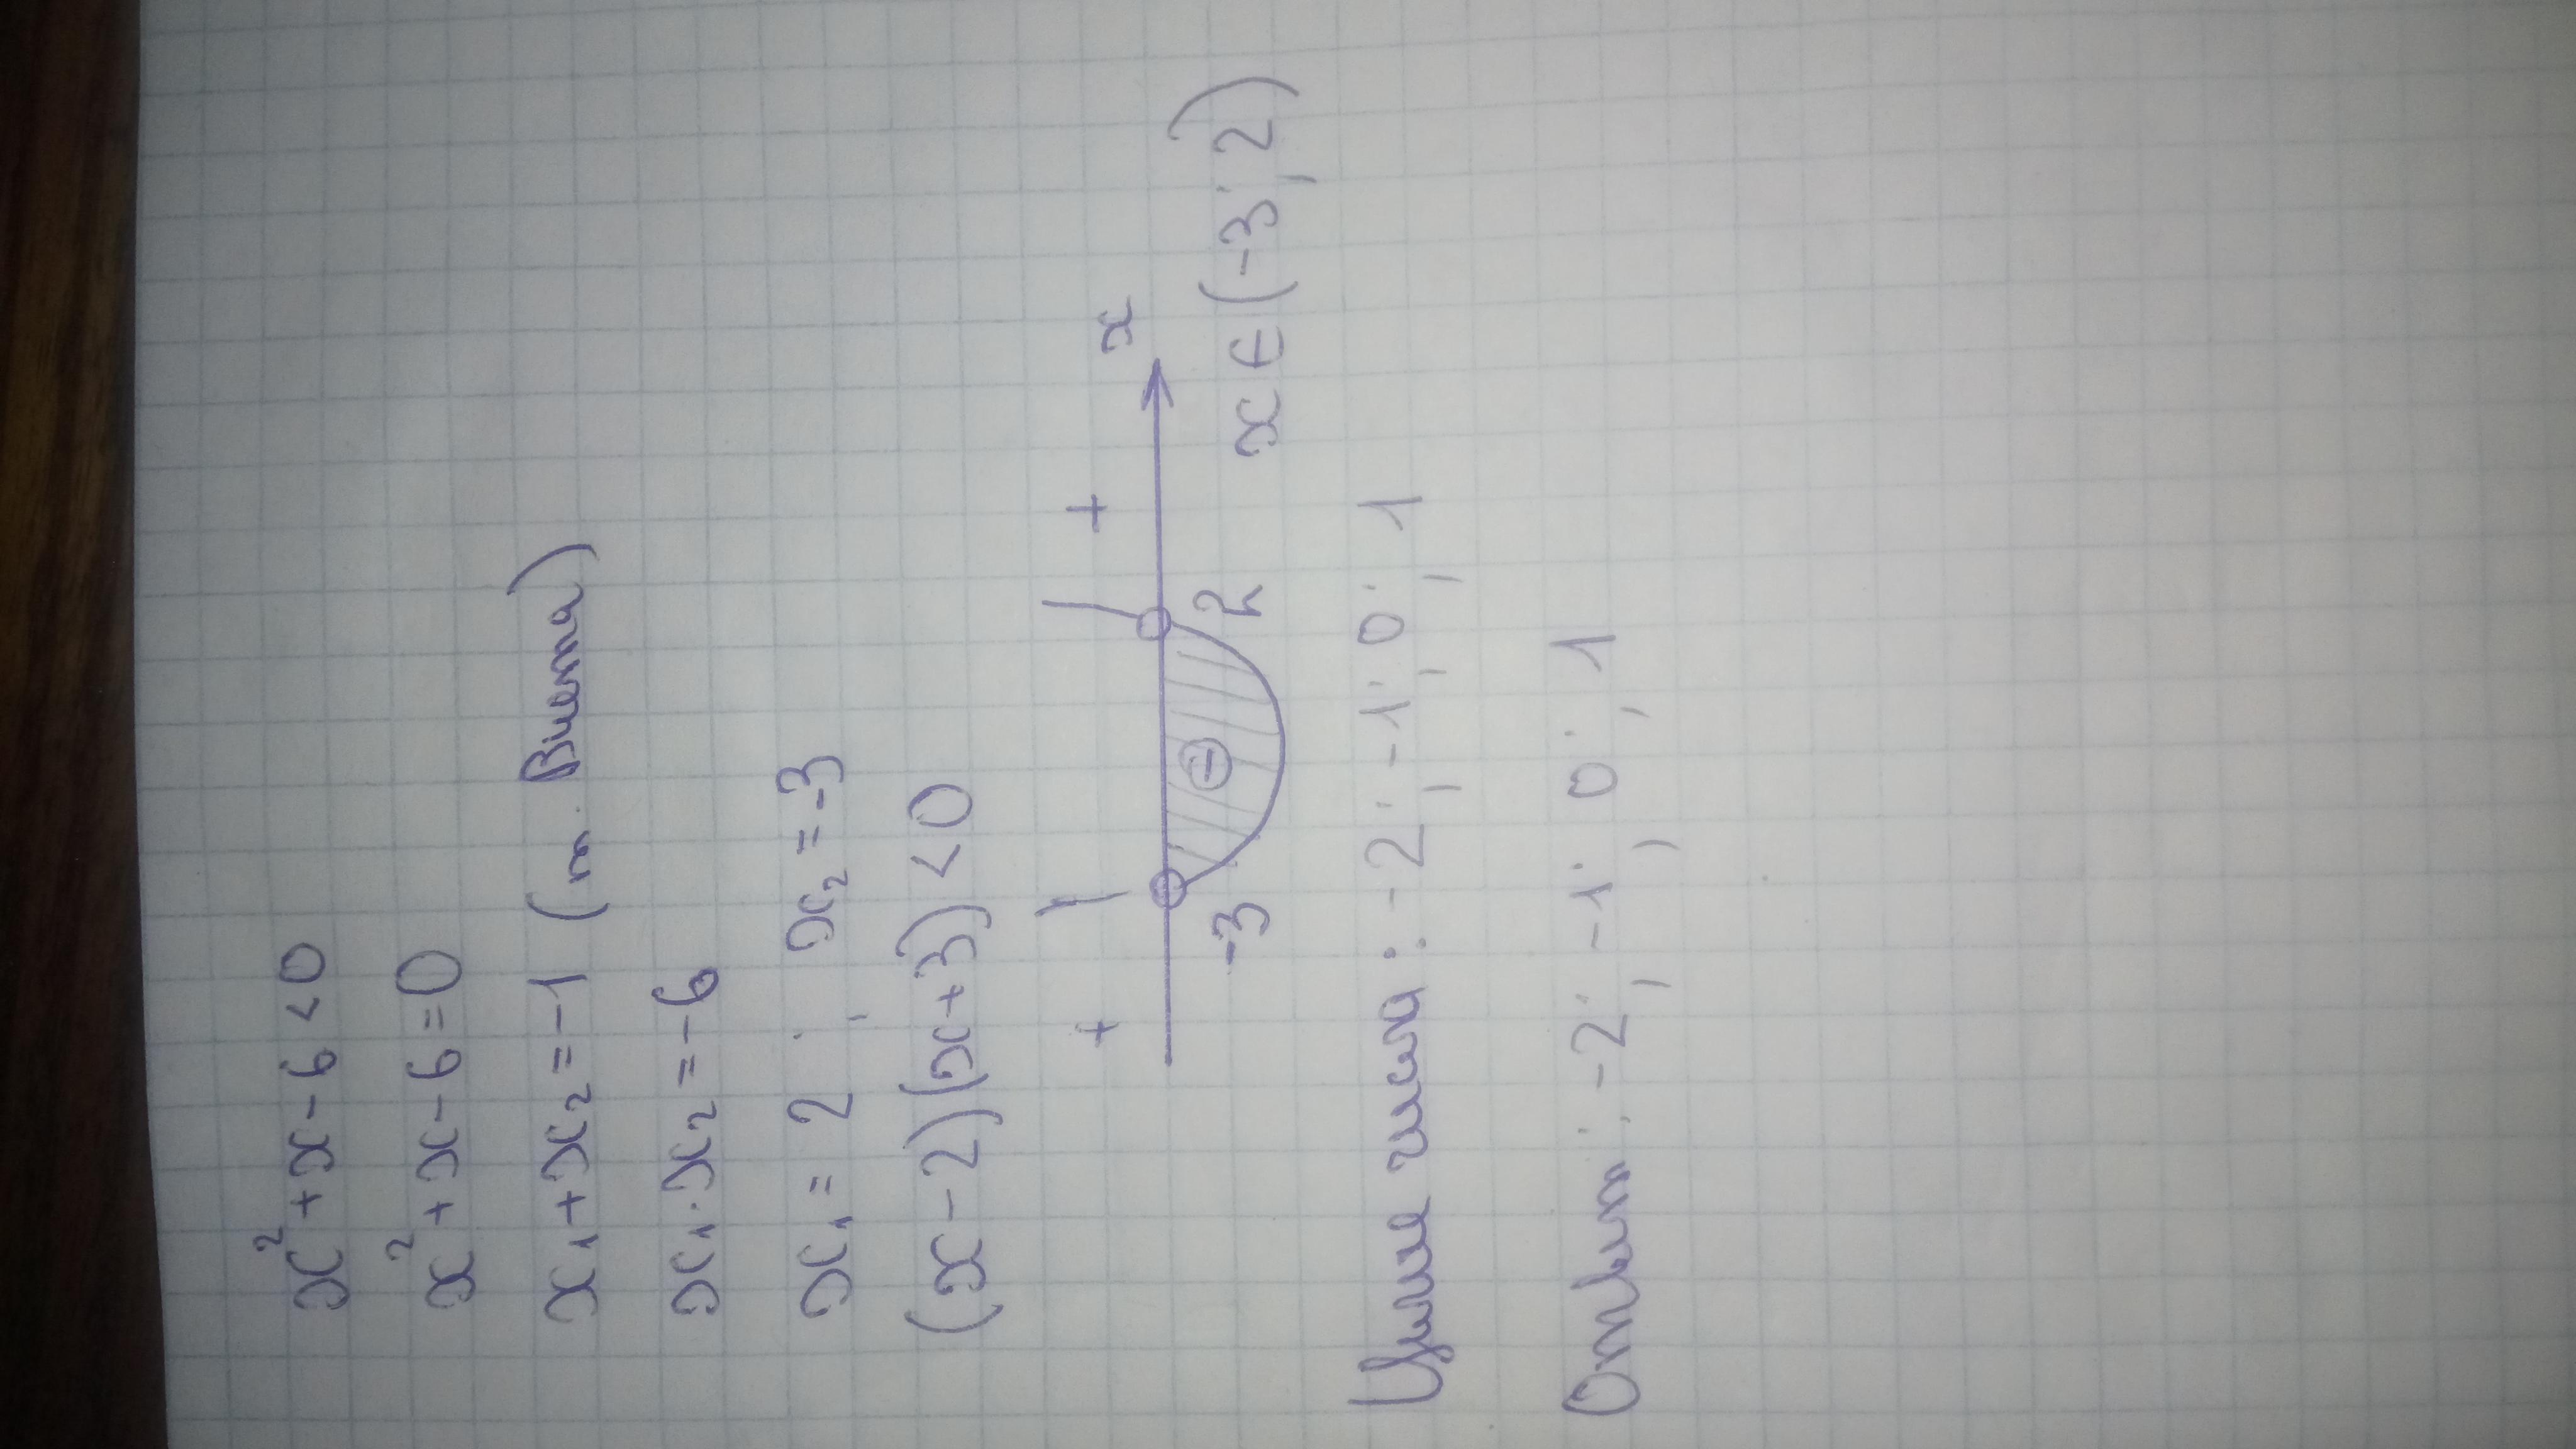 x²+x-6<0
x²+x-6=0
x₁+x₂=-1 (т. Виета)
x₁·x₂=-6
x₁=2; x₂=-3
(x-2)(x+3)<0
+ - + x
-3 2
x∈(-3;2)
Целые числа: -2; -1; 0; 1
Ответ: -2; -1; 0; 1